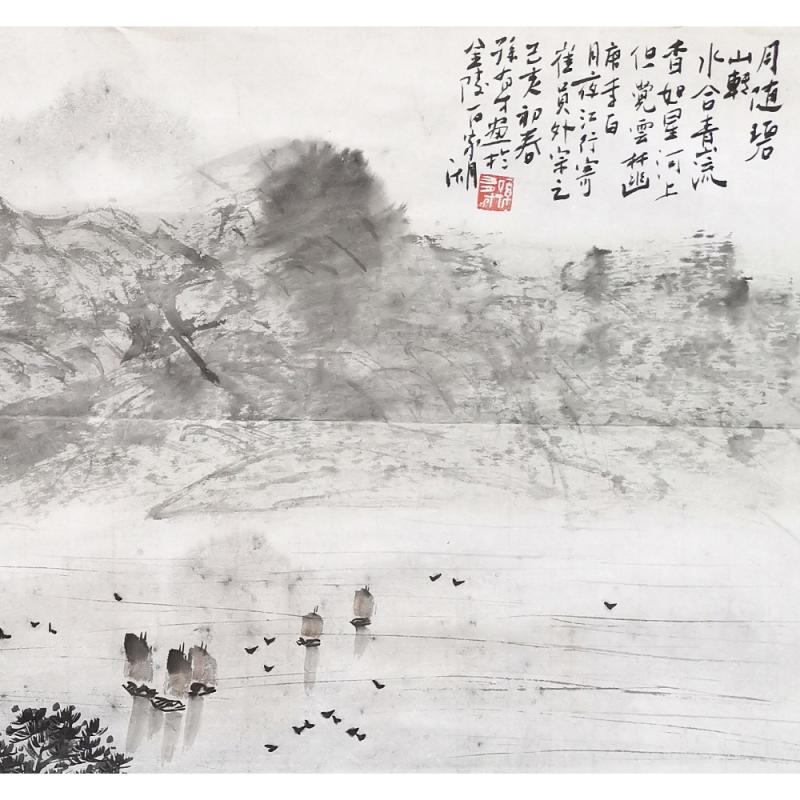 月随碧
山轉
水合青流
杳如星河上
但覺雲林幽
唐李白
月夜江行寄
崔員外宗之
己亥初春
孫有才畫於
金陵百家湖